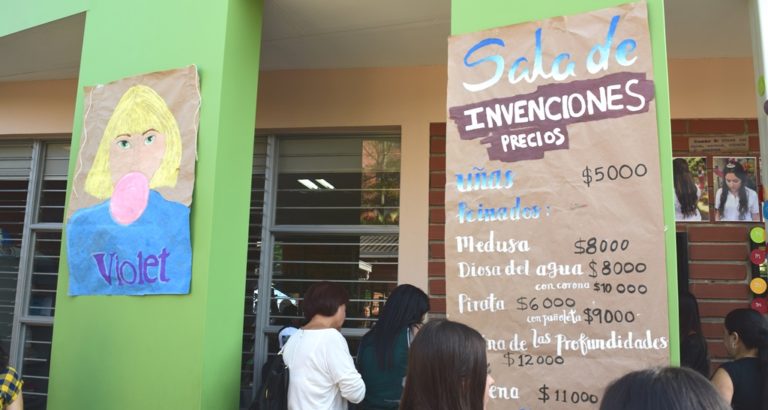 Violet
Sala de
INVENCIONES
PRECIOS
Uñas $5000
Peinados:
Medusa $8000
Diosa del agua $8000
con corona $10 000
Pirata $6 000
con pañoleta $9000
de las Profundidades
$12 000
$11 000